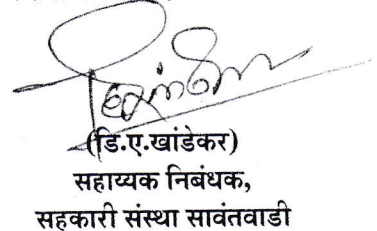 (डि.ए.खांडेकर)
सहाय्यक निबंधक,
सहकारी संस्था सावंतवाडी